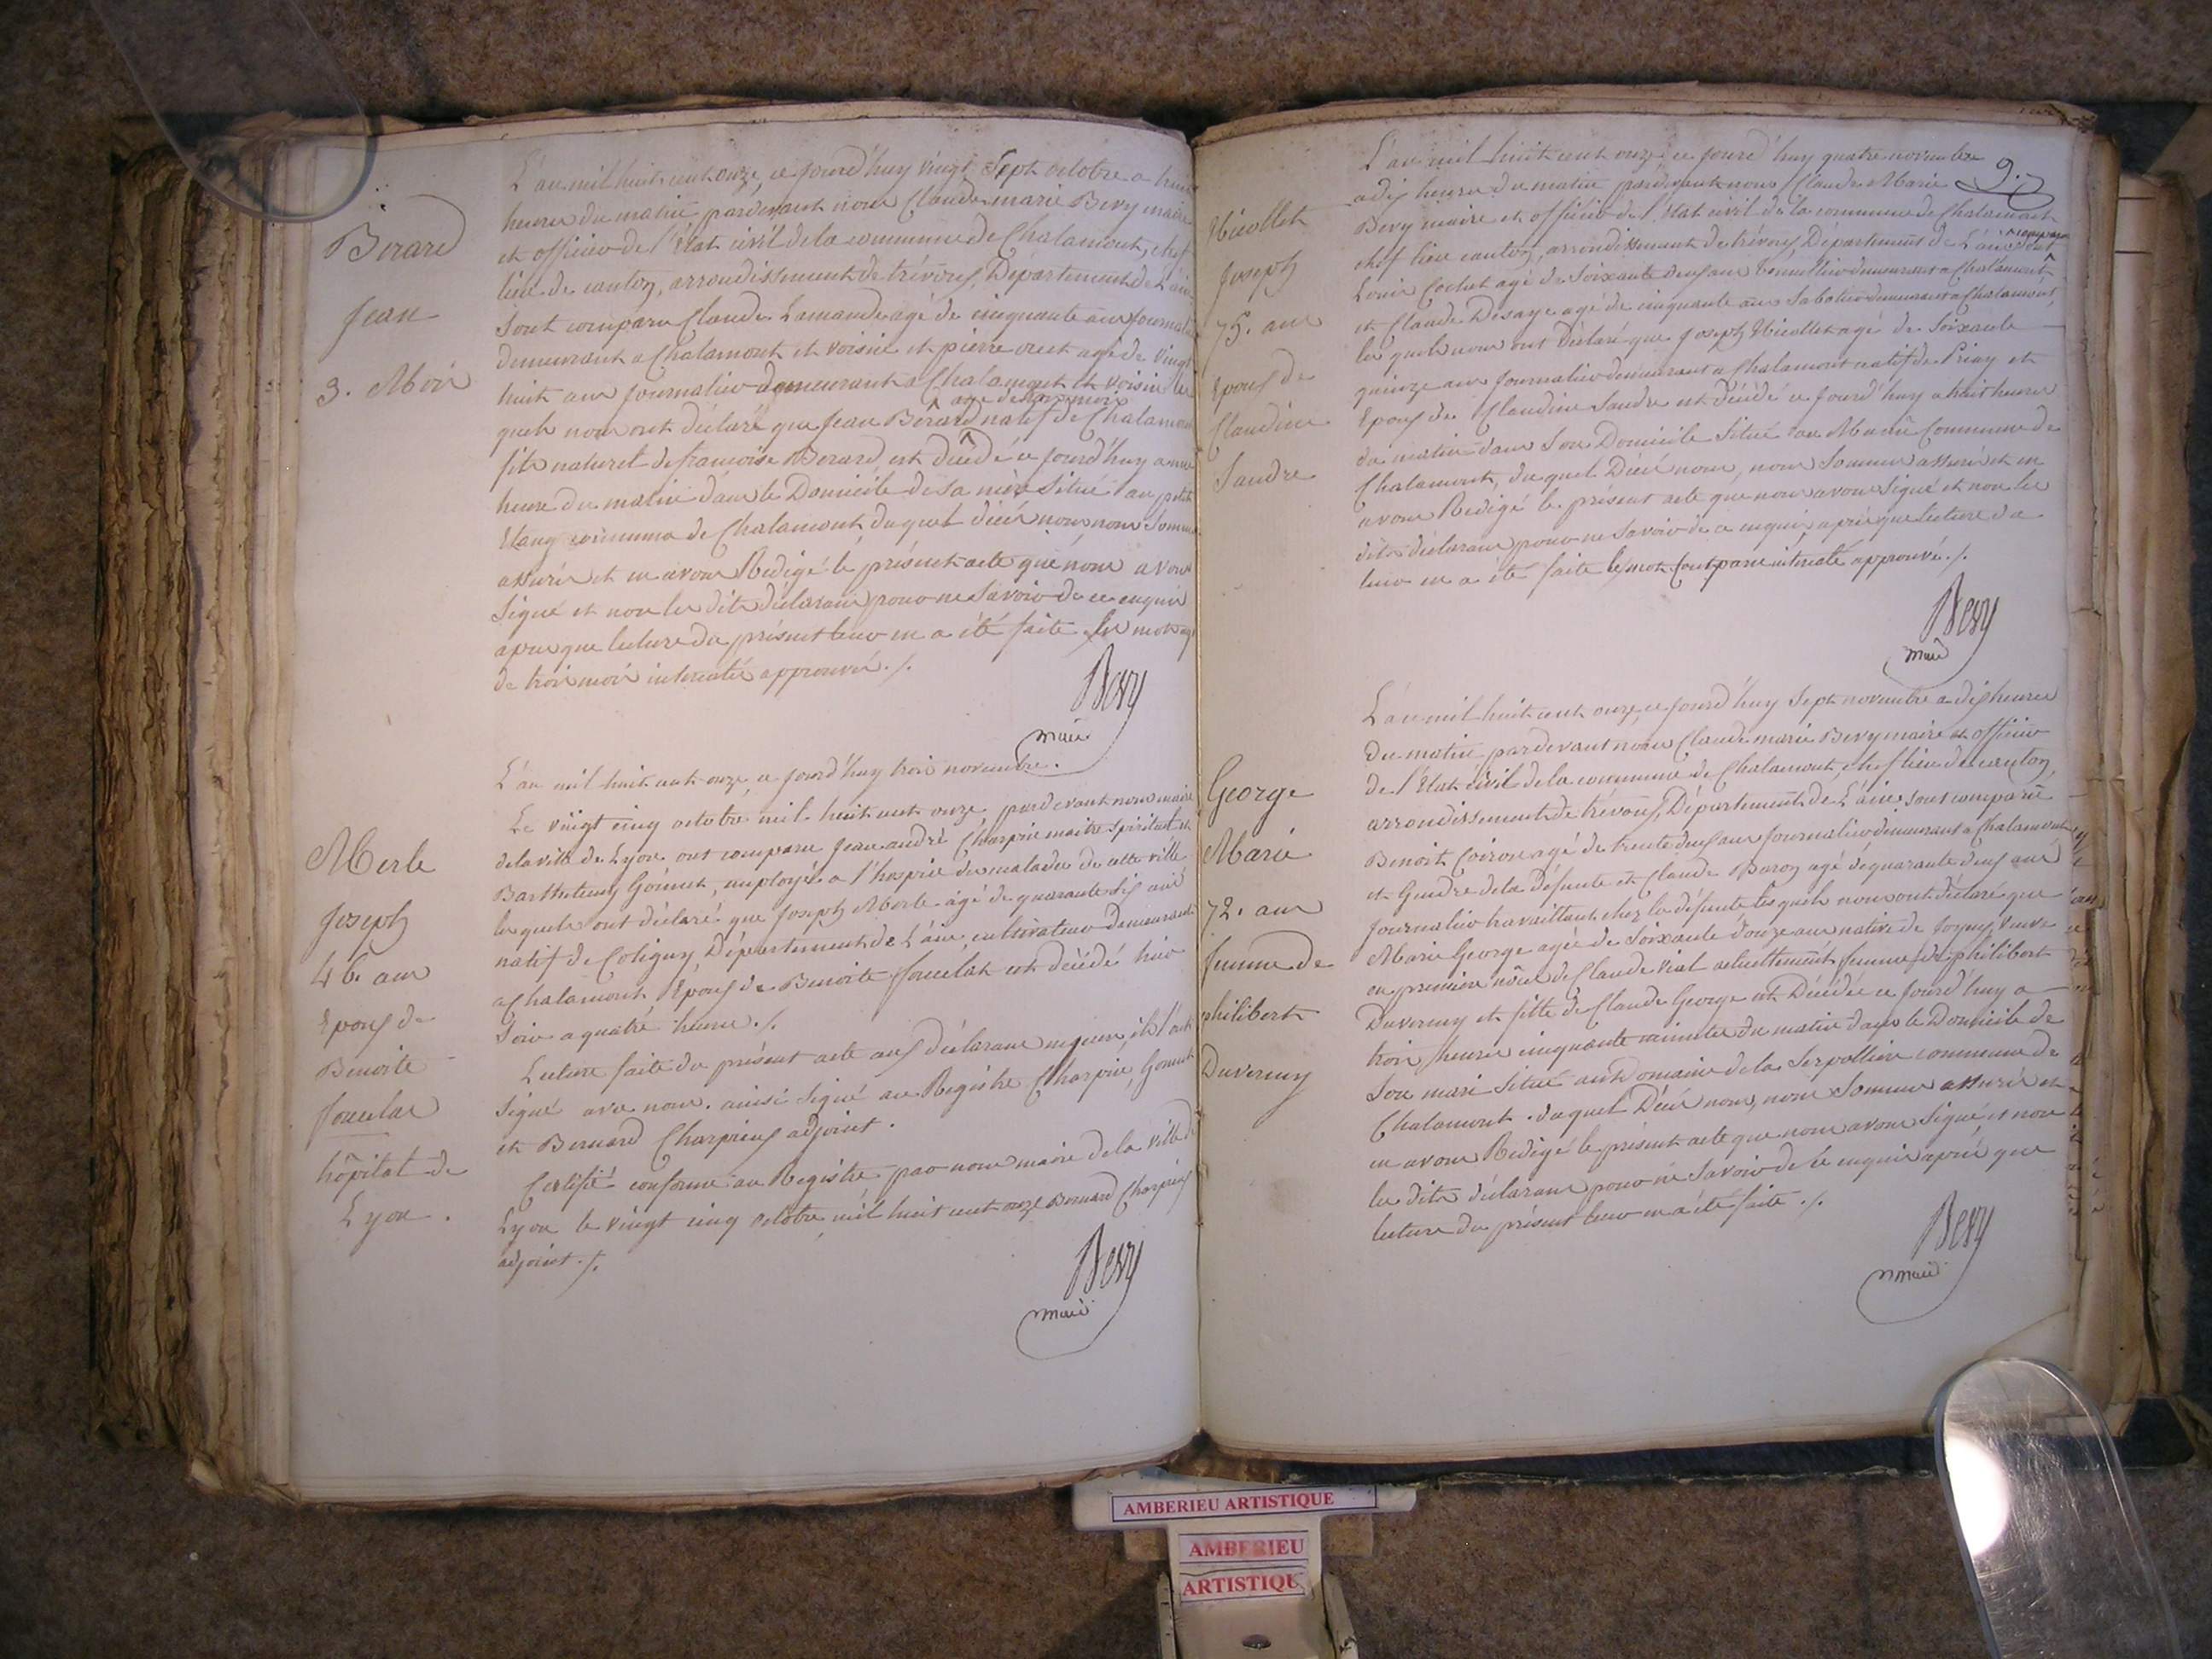 Berard
Jean
3. Mois
L'an mil huit cent onze, ce jourd'huy vingt Sept octobre a huit
heures du matin pardevant nous Claude marie Bevy maire
et officier de l'Etat civil de la commune de Chalamont, chef
lieu de canton, arrondissement de trévoux, Département de L'ain
Sont comparu Claude Lamande agé de cinquante ans Journalier
demeurant a Chalamont et voisin et pierre agé de vingt
huit ans Journalier demeurant a Chalamont et voisin les
agé de trois mois
quels nous ont déclaré que Jean Bérard natif de Chalamont
fils naturel de francoise Berard, est décédé ce jourd'huy a une
heure du matin dans le Domicile de Sa mère Situé au petit
Etang commune de Chalamont, duquel décés nous, nous Sommes
assurés et en avons Redigé le présent acte que nous avons
Signé et non les dits déclarans pour ne Savoir de ce enquis
apres que lecture du présent leur en a été faite. Les mots agé
de trois mois interealés approuvés ./.
Bevy
maire
Merle
Joseph
46. ans
Epoux de
Benoite
Joucelar
hôpital de
Lyon.
L'an mil huit cent onze, ce jourd'huy trois novembre.
Le vingt cinq octobre mil huit cent onze, pardevant nous maire
de la ville de Lyon ont comparu Jean andré Charpine maitre spirituel et
Barthelemy Goinet, employés a l'hospice des malades de cette ville
lesquels ont déclaré que Joseph Merle agé de quarante Six ans
natif de Coligny Département de L'ain, cultivateur demeurant
a Chalamont, Epoux de Benoite Joucelar est décédé hier
Soir a quatre heures ./.
Lecture faite du présent acte aux déclarans requis, ils l'ont
Signé avec nous. ainsi Signé au Registre Charpine, Goinet
et Bernard Charpieux adjoint.
Certifié conforme au Registre par nous maire de la ville de
Lyon le vingt cinq octobre mil huit cent onze Bernard Charpieux
adjoint ./.
Bevy
maire
9.
Nicollet
Joseph
75. ans
Epoux de
Claudine
Sandre
L'an mil huit cent onze, ce jourd'huy quatre novembre
a dix heures du matin pardevant nous Claude Marie
Bevy maire et officier de l'Etat civil de la commune de Chalamont
chef lieu canton, arrondissement de trévoux, Département de L'ain Sont comparu
Louis Cochet agé de Soixante deux ans demeurant a Chalamont
et Claude Desaye agé de cinquante ans Sabotier demeurant a Chalamont,
les quels nous ont Déclaré que Joseph Nicollet agé de Soixante
quinze ans Journalier demeurant a Chalamont natif de Priay et
Epoux de Claudine Sandre est décédé ce jourd'huy a huit heures
du matin dans Son Domicile Situé au Commune de
Chalamont, duquel Décés nous, nous Sommes assurés et en
avons Redigé le present acte que nous avons Signé et non les
dits déclarans pour ne Savoir de ce enquis, après que lecture du
leur en a été faite le mot comparu interealé approuvé ./.
Bevy
maire
George
Marie
72. ans
femme de
philibert
Duverney
L'an mil huit cent onze, ce jourd'huy Sept novembre a dix heures
du matin pardevant nous Claude marie Bevy maire et officier
de l'Etat civil de la commune de Chalamont, chef lieu de canton,
arrondissement de trévoux, Département de L'ain, Sont comparu
Benoit Coiron agé de trente deux ans Journalier demeurant a Chalamont
et Gendre de la Défunte et Claude Baron agé de quarante deux ans
Journalier travaillant chez la défunte lesquels nous ont déclaré que
Marie George agée de Soixante douze ans native de Joyeux, veuve
en premières nôces de Claude Vial actuellement femme de philibert
Duverney et fille de Claude George est Décédée ce jourd'huy a
trois heures cinquante minutes du matin dans le Domicile de
Son mari Situé au Domaine de la Serpollière commune de
Chalamont. duquel Décés nous, nous Sommes assurés et
en avons Redigé le présent acte que nous avons Signé, et non
les dits déclarans pour ne Savoir de ce enquis après que
lecture du présent leur en a été faite ./.
Bevy
maire
AMBERIEU ARTISTIQUE
AMBERIEU
ARTISTIQUE